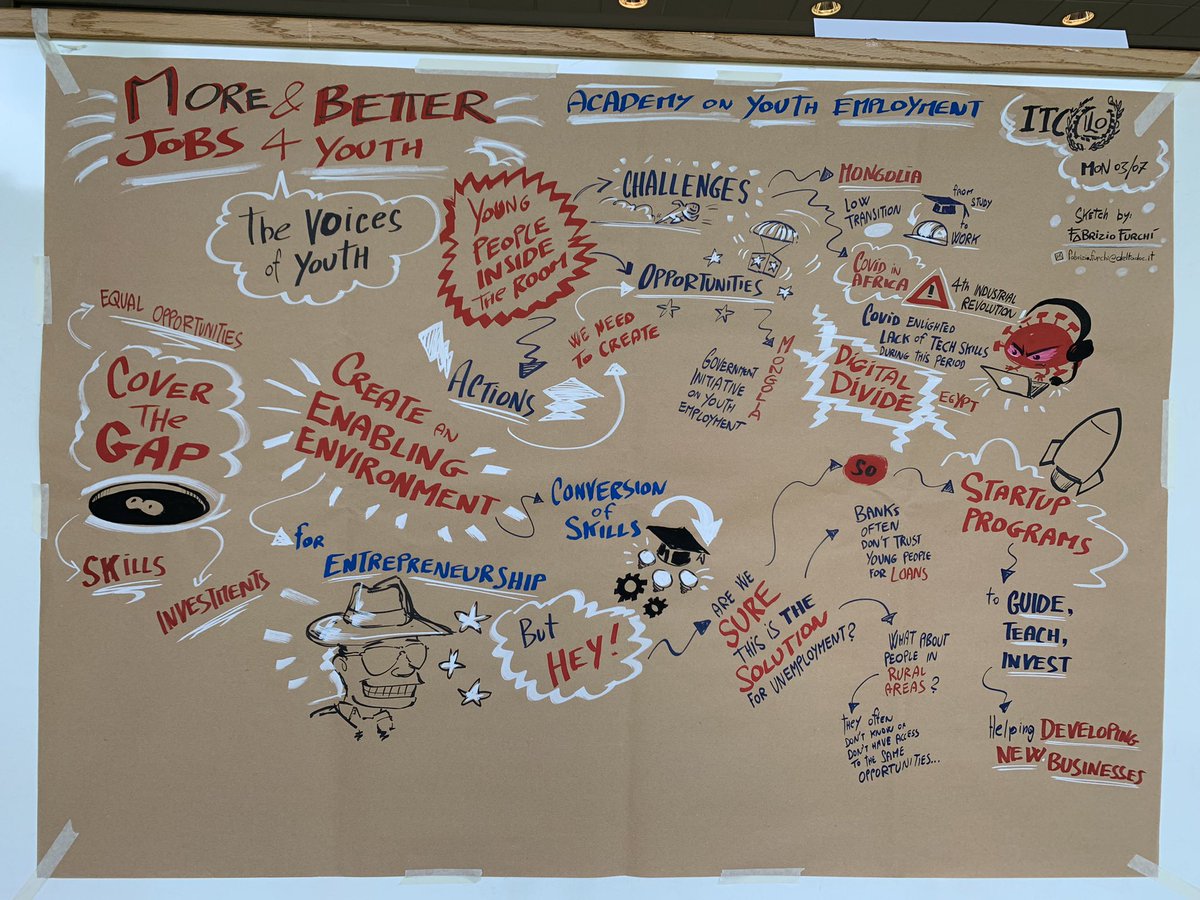 MORE & BETTER
JOBS 4 YOUTH
ACADEMY ON YOUTH EMPLOYMENT
ITC ILO
MON 03/07
Sketch by:
FABRIZIO FURCHÍ
The VOICES
of YOUTH
YOUNG
PEOPLE
INSIDE
THE ROOM
CHALLENGES
MONGOLIA
LOW
TRANSITION
FROM
STUDY
to
WORK
COVID IN
AFRICA
!
4th INDUSTRIAL
REVOLUTION
OPPORTUNITIES
WE NEED
TO CREATE
ACTIONS
GOVERNMENT
INITIATIVE
ON YOUTH
EMPLOYMENT
MONGOLIA
COVID ENLIGHTED
LACK of TECH SKILLS
DURING THIS PERIOD
DIGITAL
DIVIDE
EGYPT
EQUAL OPPORTUNITIES
COVER
THE
GAP
SKILLS
INVESTMENTS
CREATE AN
ENABLING
ENVIRONMENT
for
ENTREPRENEURSHIP
CONVERSION
of
SKILLS
But
HEY!
ARE WE
SURE
THIS IS THE
SOLUTION
FOR UNEMPLOYMENT?
SO
BANKS
OFTEN
DON'T TRUST
YOUNG PEOPLE
FOR LOANS
WHAT ABOUT
PEOPLE IN
RURAL
AREAS?
THEY OFTEN
DON'T KNOW OR
DON'T HAVE ACCESS
TO THE SAME
OPPORTUNITIES...
STARTUP
PROGRAMS
to GUIDE,
TEACH,
INVEST
Helping DEVELOPING
NEW BUSINESSES